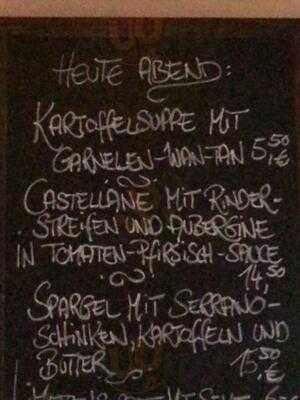 HEUTE ABEND:
KARTOFFELSUPPE MIT
GARNELEN-WAN-TAN 5,50 €
CASTELLANE MIT RINDER-
STREIFEN UND AUBERGINE
IN TOMATEN-PFIRSISCH-SAUCE
14,50
SPARGEL MIT SERRANO-
SCHINKEN, KARTOFFELN UND
BUTTER 15,50 €